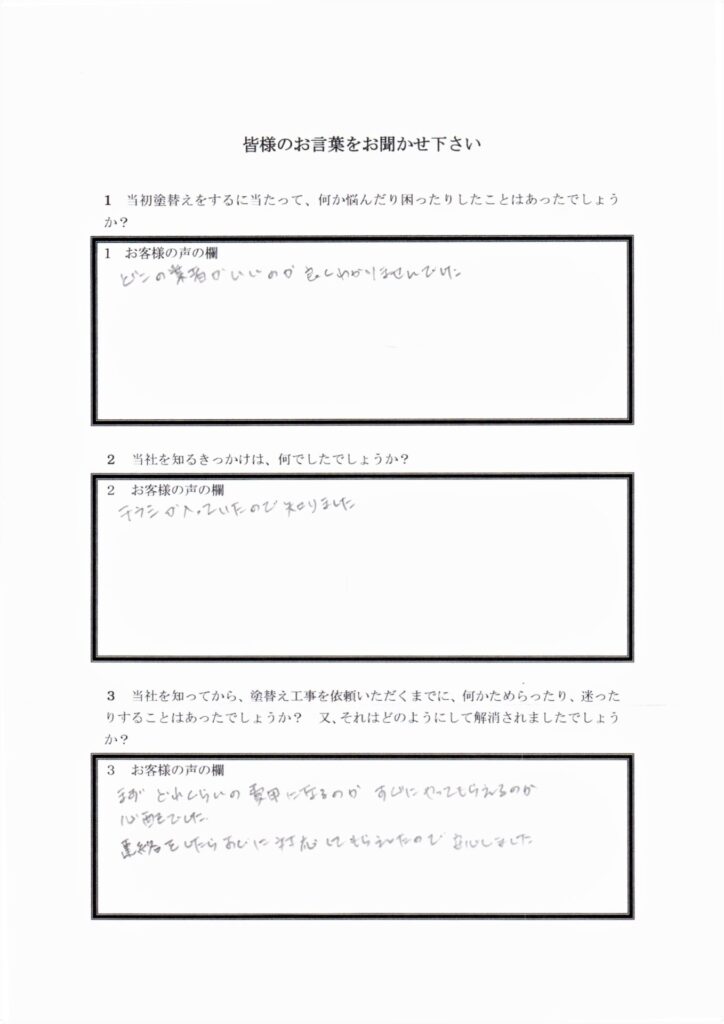 皆様のお言葉をお聞かせ下さい
1 当初塗替えをするに当たって、何か悩んだり困ったりしたことはあったでしょう
か？
1 お客様の声の欄
どこの業者がいいのか わかりませんでした
2 当社を知るきっかけは、何でしたでしょうか？
2 お客様の声の欄
チラシが入っていたので知りました
3 当社を知ってから、塗替え工事を依頼いただくまでに、何かためらったり、迷った
りすることはあったでしょうか？ 又、それはどのようにして解消されましたでしょう
か？
3 お客様の声の欄
まず どれくらいの費用になるのか すぐにやってもらえるのか
心配でした
連絡をしたらすぐに対応してもらえたので 安心しました